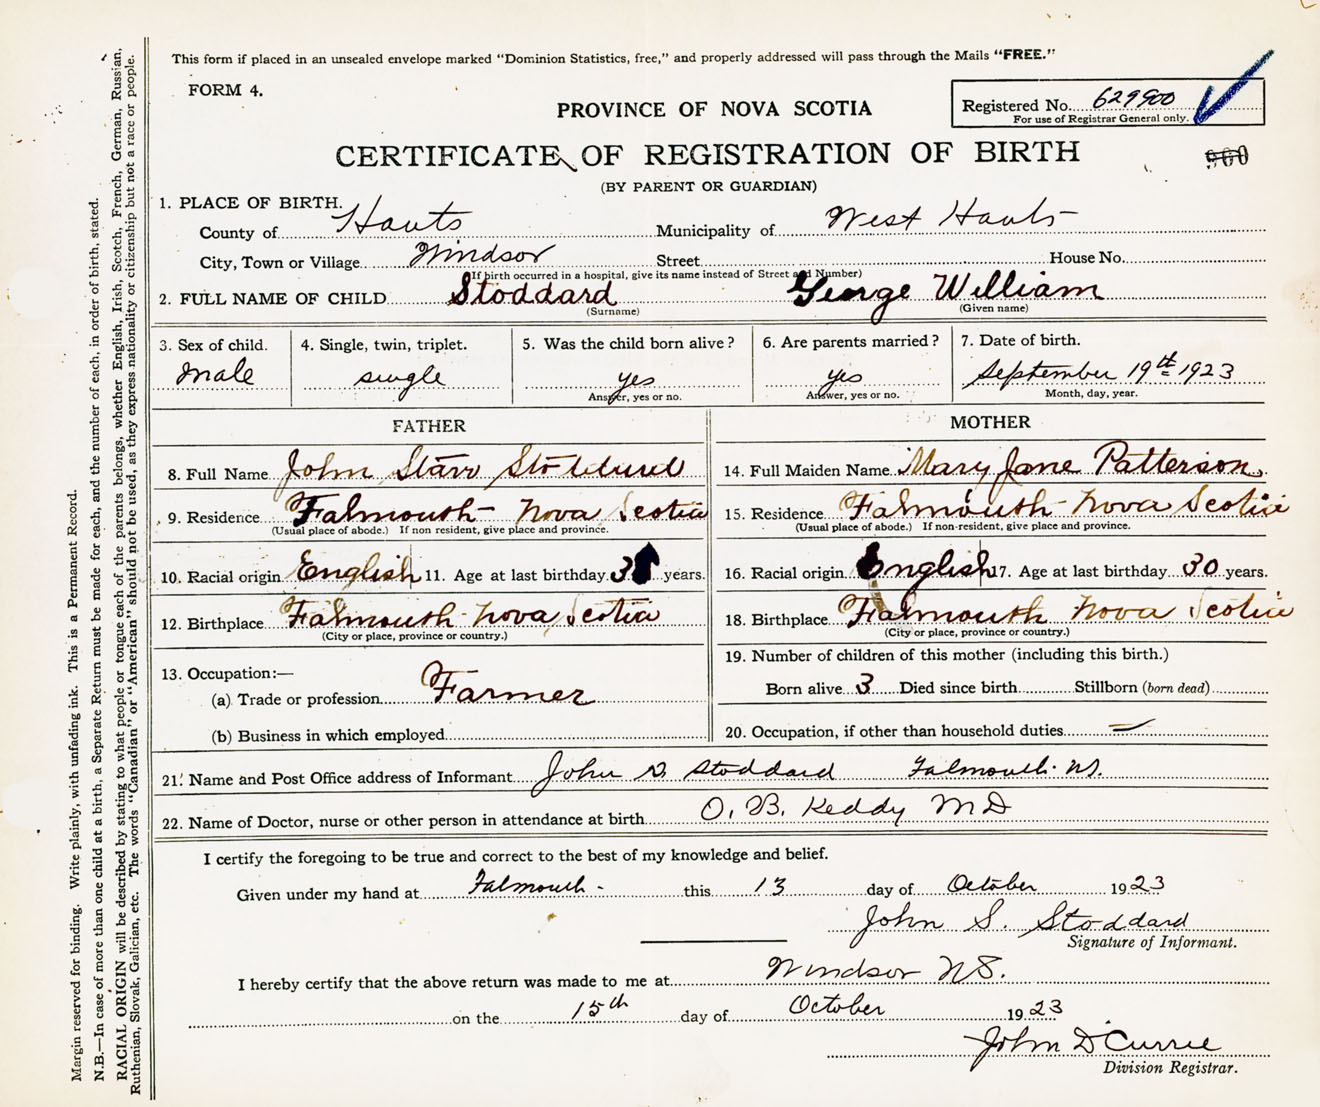 This form if placed in an unsealed envelope marked "Dominion Statistics, free," and properly addressed will pass through the Mails "FREE."
FORM 4.
PROVINCE OF NOVA SCOTIA
Registered No. 629900
For use of Registrar General only.
CERTIFICATE OF REGISTRATION OF BIRTH
960
(BY PARENT OR GUARDIAN)
1. PLACE OF BIRTH.
County of Hants Municipality of West Hants
City, Town or Village Windsor Street House No.
(If birth occurred in a hospital, give its name instead of Street and Number)
2. FULL NAME OF CHILD Stoddard George William
(Surname) (Given name)
3. Sex of child. 4. Single, twin, triplet. 5. Was the child born alive? 6. Are parents married? 7. Date of birth.
male single yes yes September 19th 1923
Answer, yes or no. Answer, yes or no. Month, day, year.
FATHER MOTHER
8. Full Name John Starr Stoddard 14. Full Maiden Name Mary Jane Patterson.
9. Residence Falmouth Nova Scotia 15. Residence Falmouth Nova Scotia
(Usual place of abode.) If non resident, give place and province. (Usual place of abode.) If non-resident, give place and province.
10. Racial origin English 11. Age at last birthday years. 16. Racial origin English 17. Age at last birthday 30 years.
12. Birthplace Falmouth Nova Scotia 18. Birthplace Falmouth Nova Scotia
(City or place, province or country.) (City or place, province or country.)
13. Occupation:— 19. Number of children of this mother (including this birth.)
(a) Trade or profession Farmer Born alive 3 Died since birth Stillborn (born dead)
(b) Business in which employed 20. Occupation, if other than household duties —
21. Name and Post Office address of Informant John S. Stoddard Falmouth NS.
22. Name of Doctor, nurse or other person in attendance at birth O. B. Keddy MD
I certify the foregoing to be true and correct to the best of my knowledge and belief.
Given under my hand at Falmouth - this 13 day of October 1923
John S. Stoddard
Signature of Informant.
I hereby certify that the above return was made to me at Windsor NS.
on the 15th day of October 1923
John D Currie
Division Registrar.
Margin reserved for binding. Write plainly, with unfading ink. This is a Permanent Record.
N.B.—In case of more than one child at a birth, a Separate Return must be made for each, and the number of each, in order of birth, stated.
RACIAL ORIGIN will be described by stating to what people or tongue each of the parents belongs, whether English, Irish, Scotch, French, German, Russian,
Ruthenian, Slovak, Galician, etc. The words "Canadian" or "American" should not be used, as they express nationality or citizenship but not a race or people.